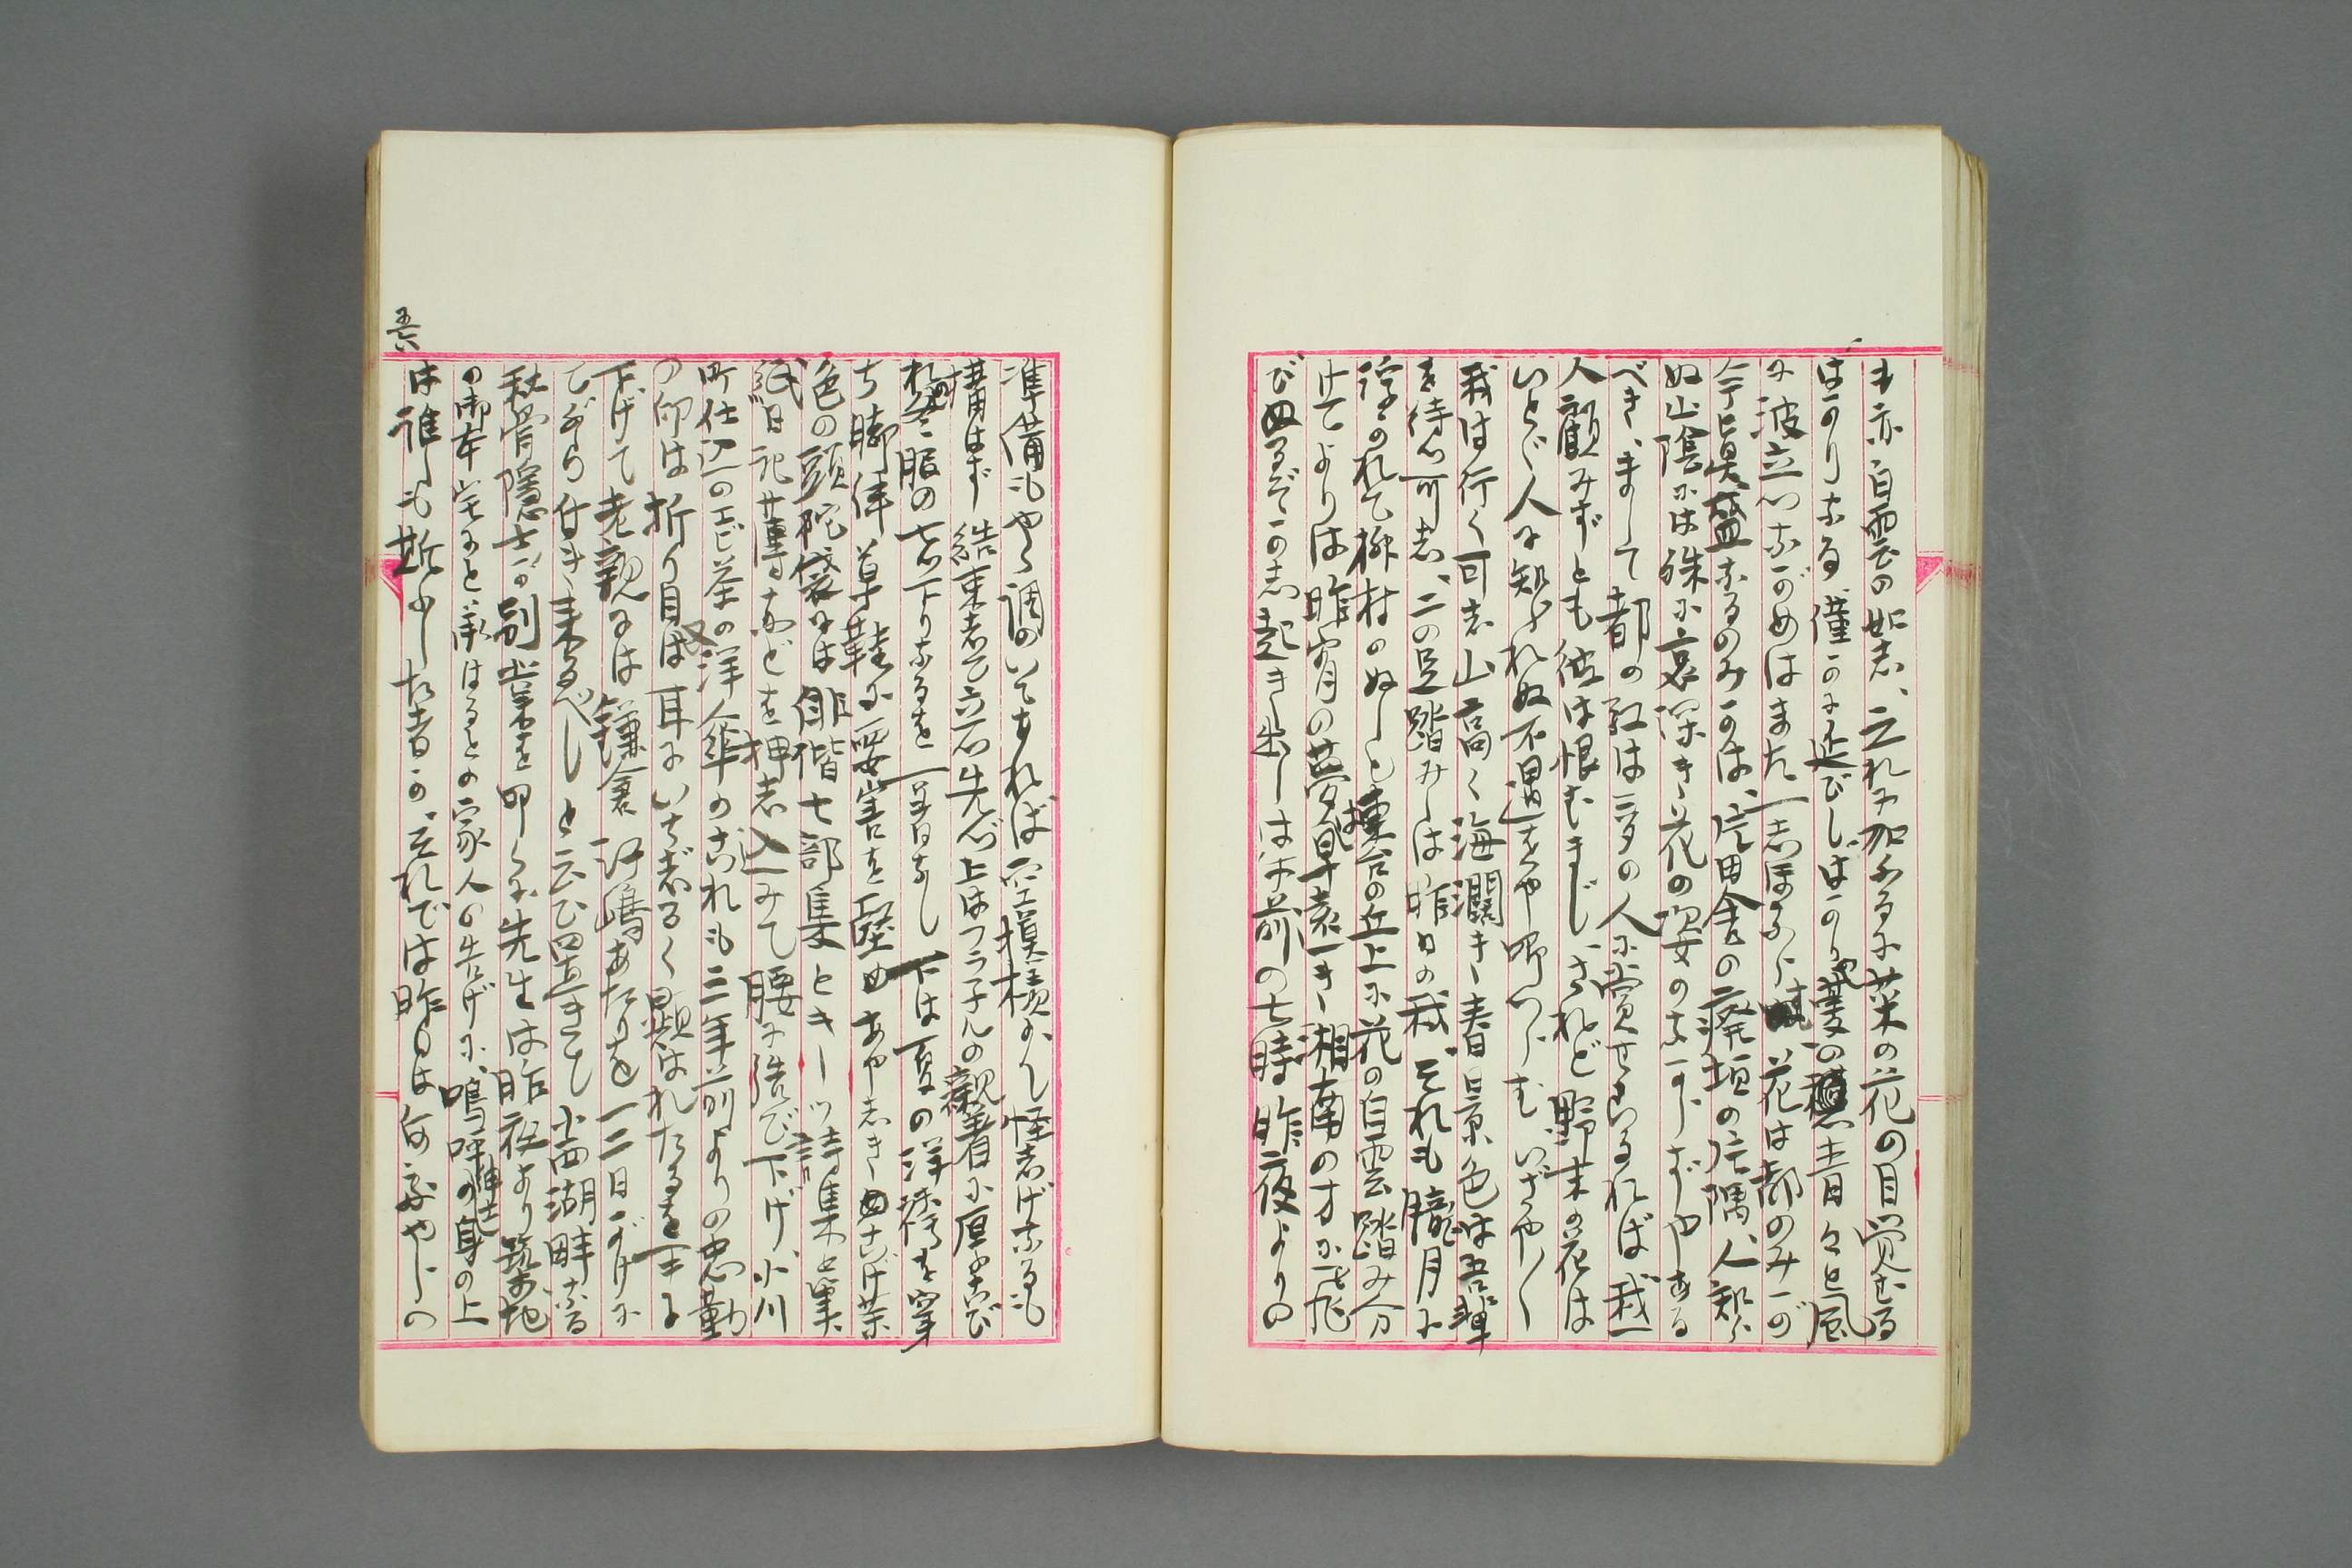 も亦白雲の如し、之れに加ふるに菜の花の目覚むる
ばかりなる、僅かに延びしばかりの麦の青々と風
に波立つながめはまた一しほなり、花は都のみが
今日真盛なるのみかは、片田舎の廃垣の片隅、人知ら
ぬ山陰には殊に哀深き花の姿のなからずやある
べき、まして都の紅は多の人に賞せらるれば我一
人顧みずとも彼は恨むまじ、されど野末の花は
いとゞ人に知られぬ不遇をや喞つらむ、いざや〳〵
我は行く可し山高く海濶き春日景色は吾輩
を待つ可し、二の足踏みしは昨日の我、それも朧月に
浮かれて柳村のぬしと台の丘上に花の白雲踏み分
けてよりは昨宵の夢早遠き湘南の方に飛
び四ぞかし起き出しは午前の七時昨夜よりの
準備もやゝ調のいてあれば空模様少し怪しげなるも
構はず結束して立つ先づ上はフランネルの親着に厚ら
れ冬服の七つ下りなるを一着なし下は夏の洋袴を穿
ち脚絆草鞋に要害を堅めあやしきめこげ茶
色の頭陀袋には俳偕七部集とキーツ詩集と巣
紙日記簿などを押し込みて腰に結び下げ、小川
町仕込のエビ茶の洋傘のこれも三年前よりの忠勤
の印は折り目は耳にいちじるく顕はれたるを一本
下げて老親には鎌倉江嶋あたりを一二日がけに
てぶらつき来るべしと云ひ置きて小西湖畔なる
秋骨隠士が別業を叩くに先生は昨夜より築地
の御本宅にと承はるとの家人の告げに、嗚呼紳士の身の上
は誰しも斯ふした者か、それでは昨日は何、家やらの